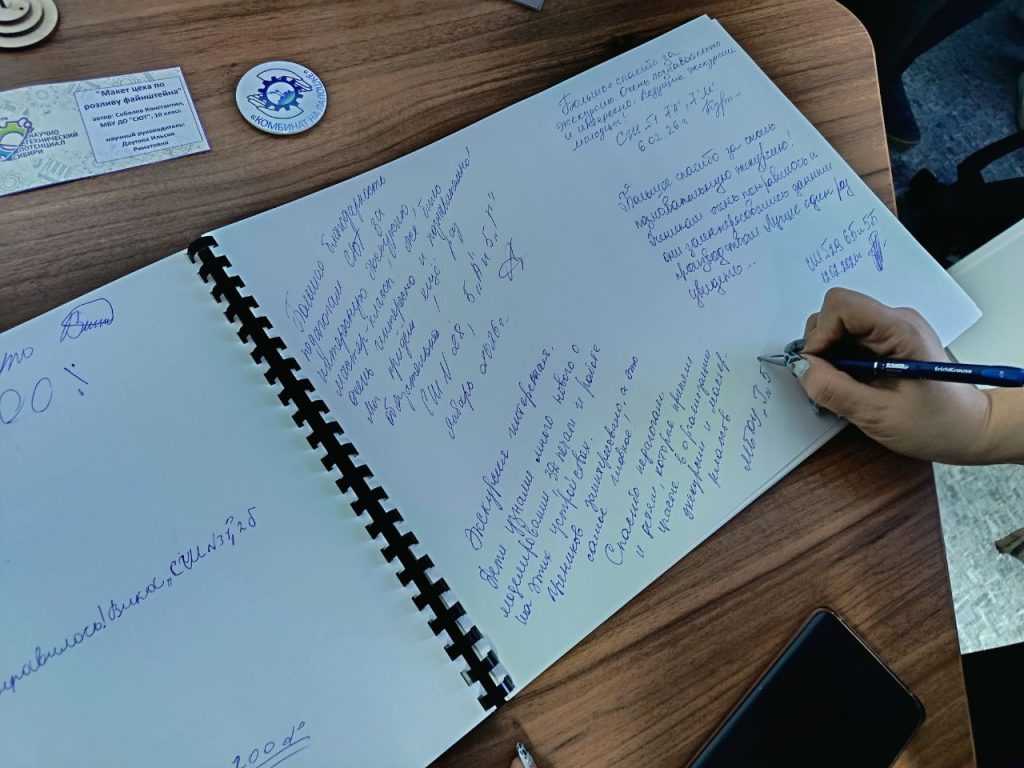 "Макет цеха по
розливу файнштейна"
автор: Соболев Константин,
МБУ ДО "СЮТ", 10 класс
научный руководитель:
Даутова Ильсия
Ринатовна
НАУЧНО
ТЕХНИЧЕСКИЙ
ПОТЕНЦИАЛ
СИБИРИ
«КОМБИНАТ НА ЛАДОШКЕ»
00!
нравилось! Вика „СШ №37„ 2б
200%
Большая благодарность
СЮТ за
интересную экскурсию,
мастер-класс! Это было
очень интересно и познавательно!
Мы придём ещё раз
обязательно!
СШ № 28, 5 „А" и 5 „Г"
февраль 2026г
Большое спасибо за
экскурсию. Очень познавательно
и интересно. Ведущие экскурсии
молодцы!
6.02.26 г
Большое спасибо за столь
познавательную экскурсию.
Ученикам очень понравилось и
они заинтересовались данным
производством. Лучше один раз
увидеть...
Экскурсия интересная.
Дети узнали много нового о
моделировании, 3д печати и работе
на этих устройствах.
Ребятишек заинтересовало, а это
самое главное!
Спасибо педагогам
и детям, которые приняли
участие в организации
экскурсий и мастер
классов
ErichKrause